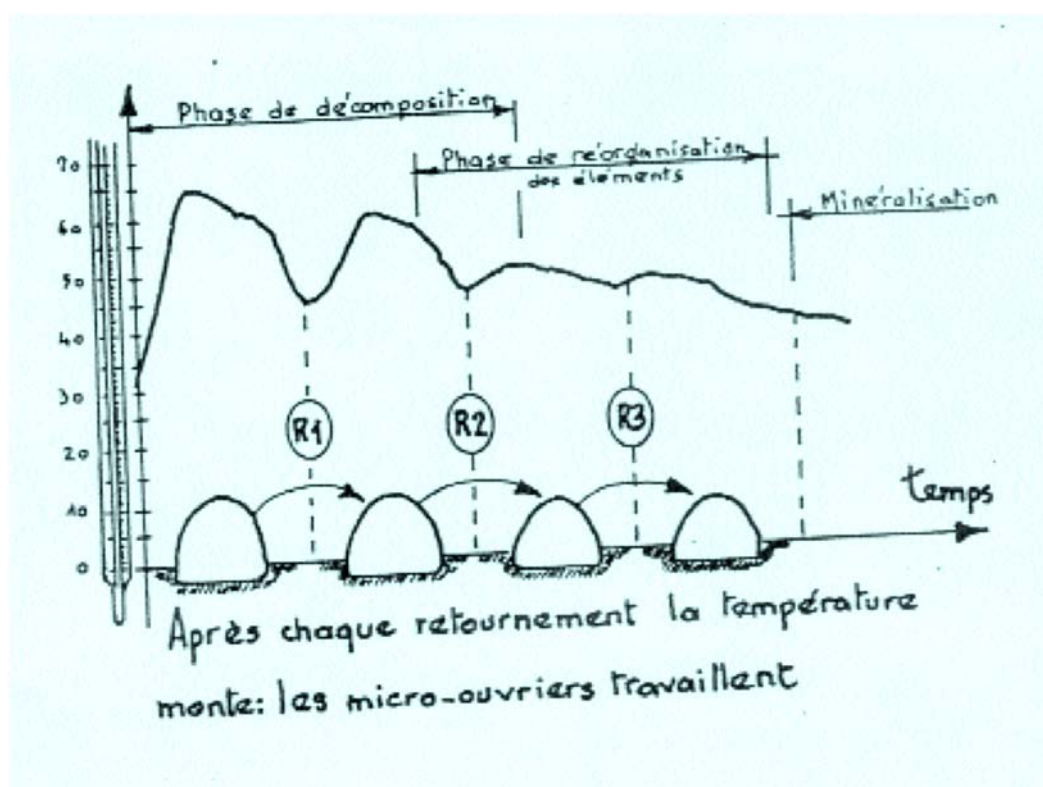 Phase de décomposition
Phase de réorganisation
des éléments
Minéralisation
70
60
50
40
30
20
10
0
R1
R2
R3
temps
Après chaque retournement la température
monte: les micro-ouvriers travaillent